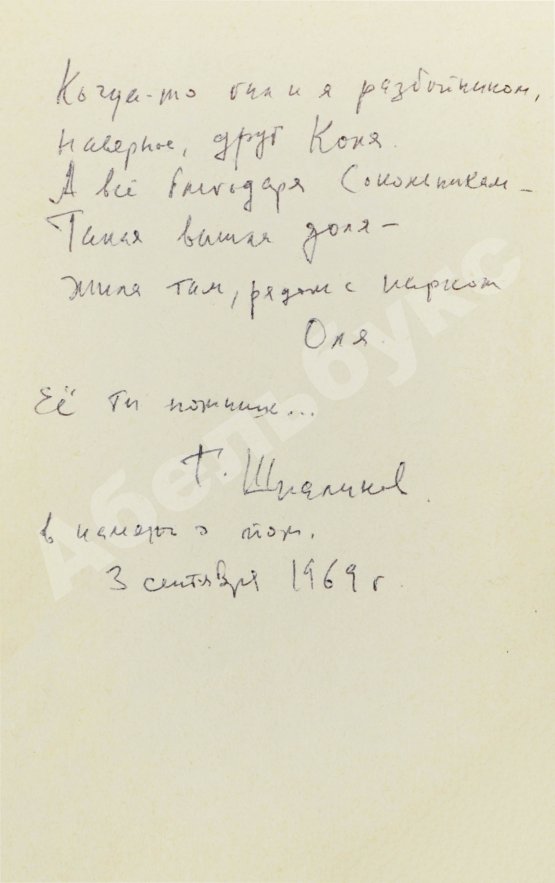 Когда-то был и я разбойником,
Наверное, друг Коля.
А всё благодаря Сокольникам –
Такая вышла доля –
Жила там, рядом с парком
Оля.
Её ты помнишь...
Г. Шпаликов
в память о том.
3 сентября 1969 г.
Абельбукс